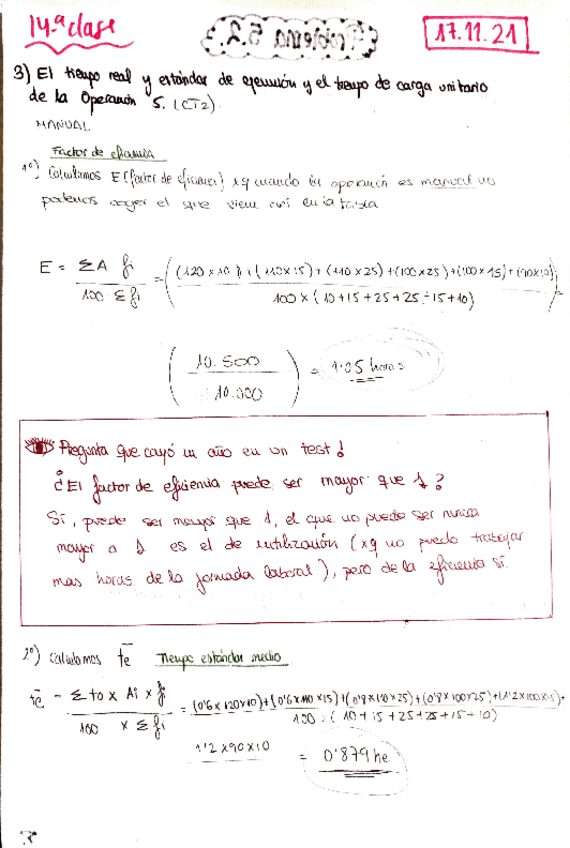 14.ª clase
Problema 5.2.
17.11.21
3) El tiempo real y estándar de ejecución y el tiempo de carga unitario
de la Operación 5. (CT2).
MANUAL.
Factor de eficiencia
1º) Calculamos E (factor de eficiencia) xq cuando la operación es manual no
podemos coger el que viene en la tabla
E = ΣA fi / 100 Σ fi = ( (120 x 10) + (110 x 15) + (110 x 25) + (100 x 25) + (100 x 15) + (90x10) / 100 x (10+15+25+25+15+10) )
( 10.500 / 10.000 ) = 1'05 horas
Pregunta que cayó un año en un test!
¿El factor de eficiencia puede ser mayor que 1?
Sí, puede ser mayor que 1, el que no puede ser nunca
mayor a 1 es el de utilización (xq no puedo trabajar
mas horas de la jornada laboral), pero de la eficiencia sí.
2º) Calculamos te Tiempo estándar medio
te = Σ to x Ai x fi / 100 x Σ fi = (0'6 x 120x10)+(0'6 x 110 x15)+(0'8x110x25)+(0'8x100x25)+(1'2x100x15)+ / 100 · (10+15+25+25+15+10)
1'2 x90x10
= 0'879 he